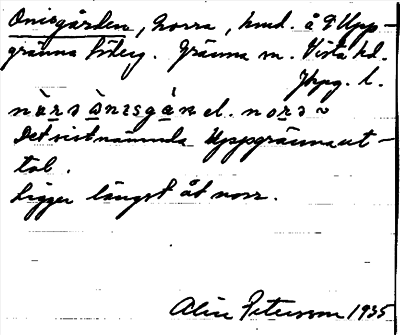 Onisgården, Norra, hmd. å P Upp-
gränna Föberg. Gränna sn. Vista hd.
Jkpg. l.
nòrs ònisgån el. norə ~
Det sistnämnda Uppgränna ut-
tal.
Ligger längst åt norr.
Alice Petersson 1935